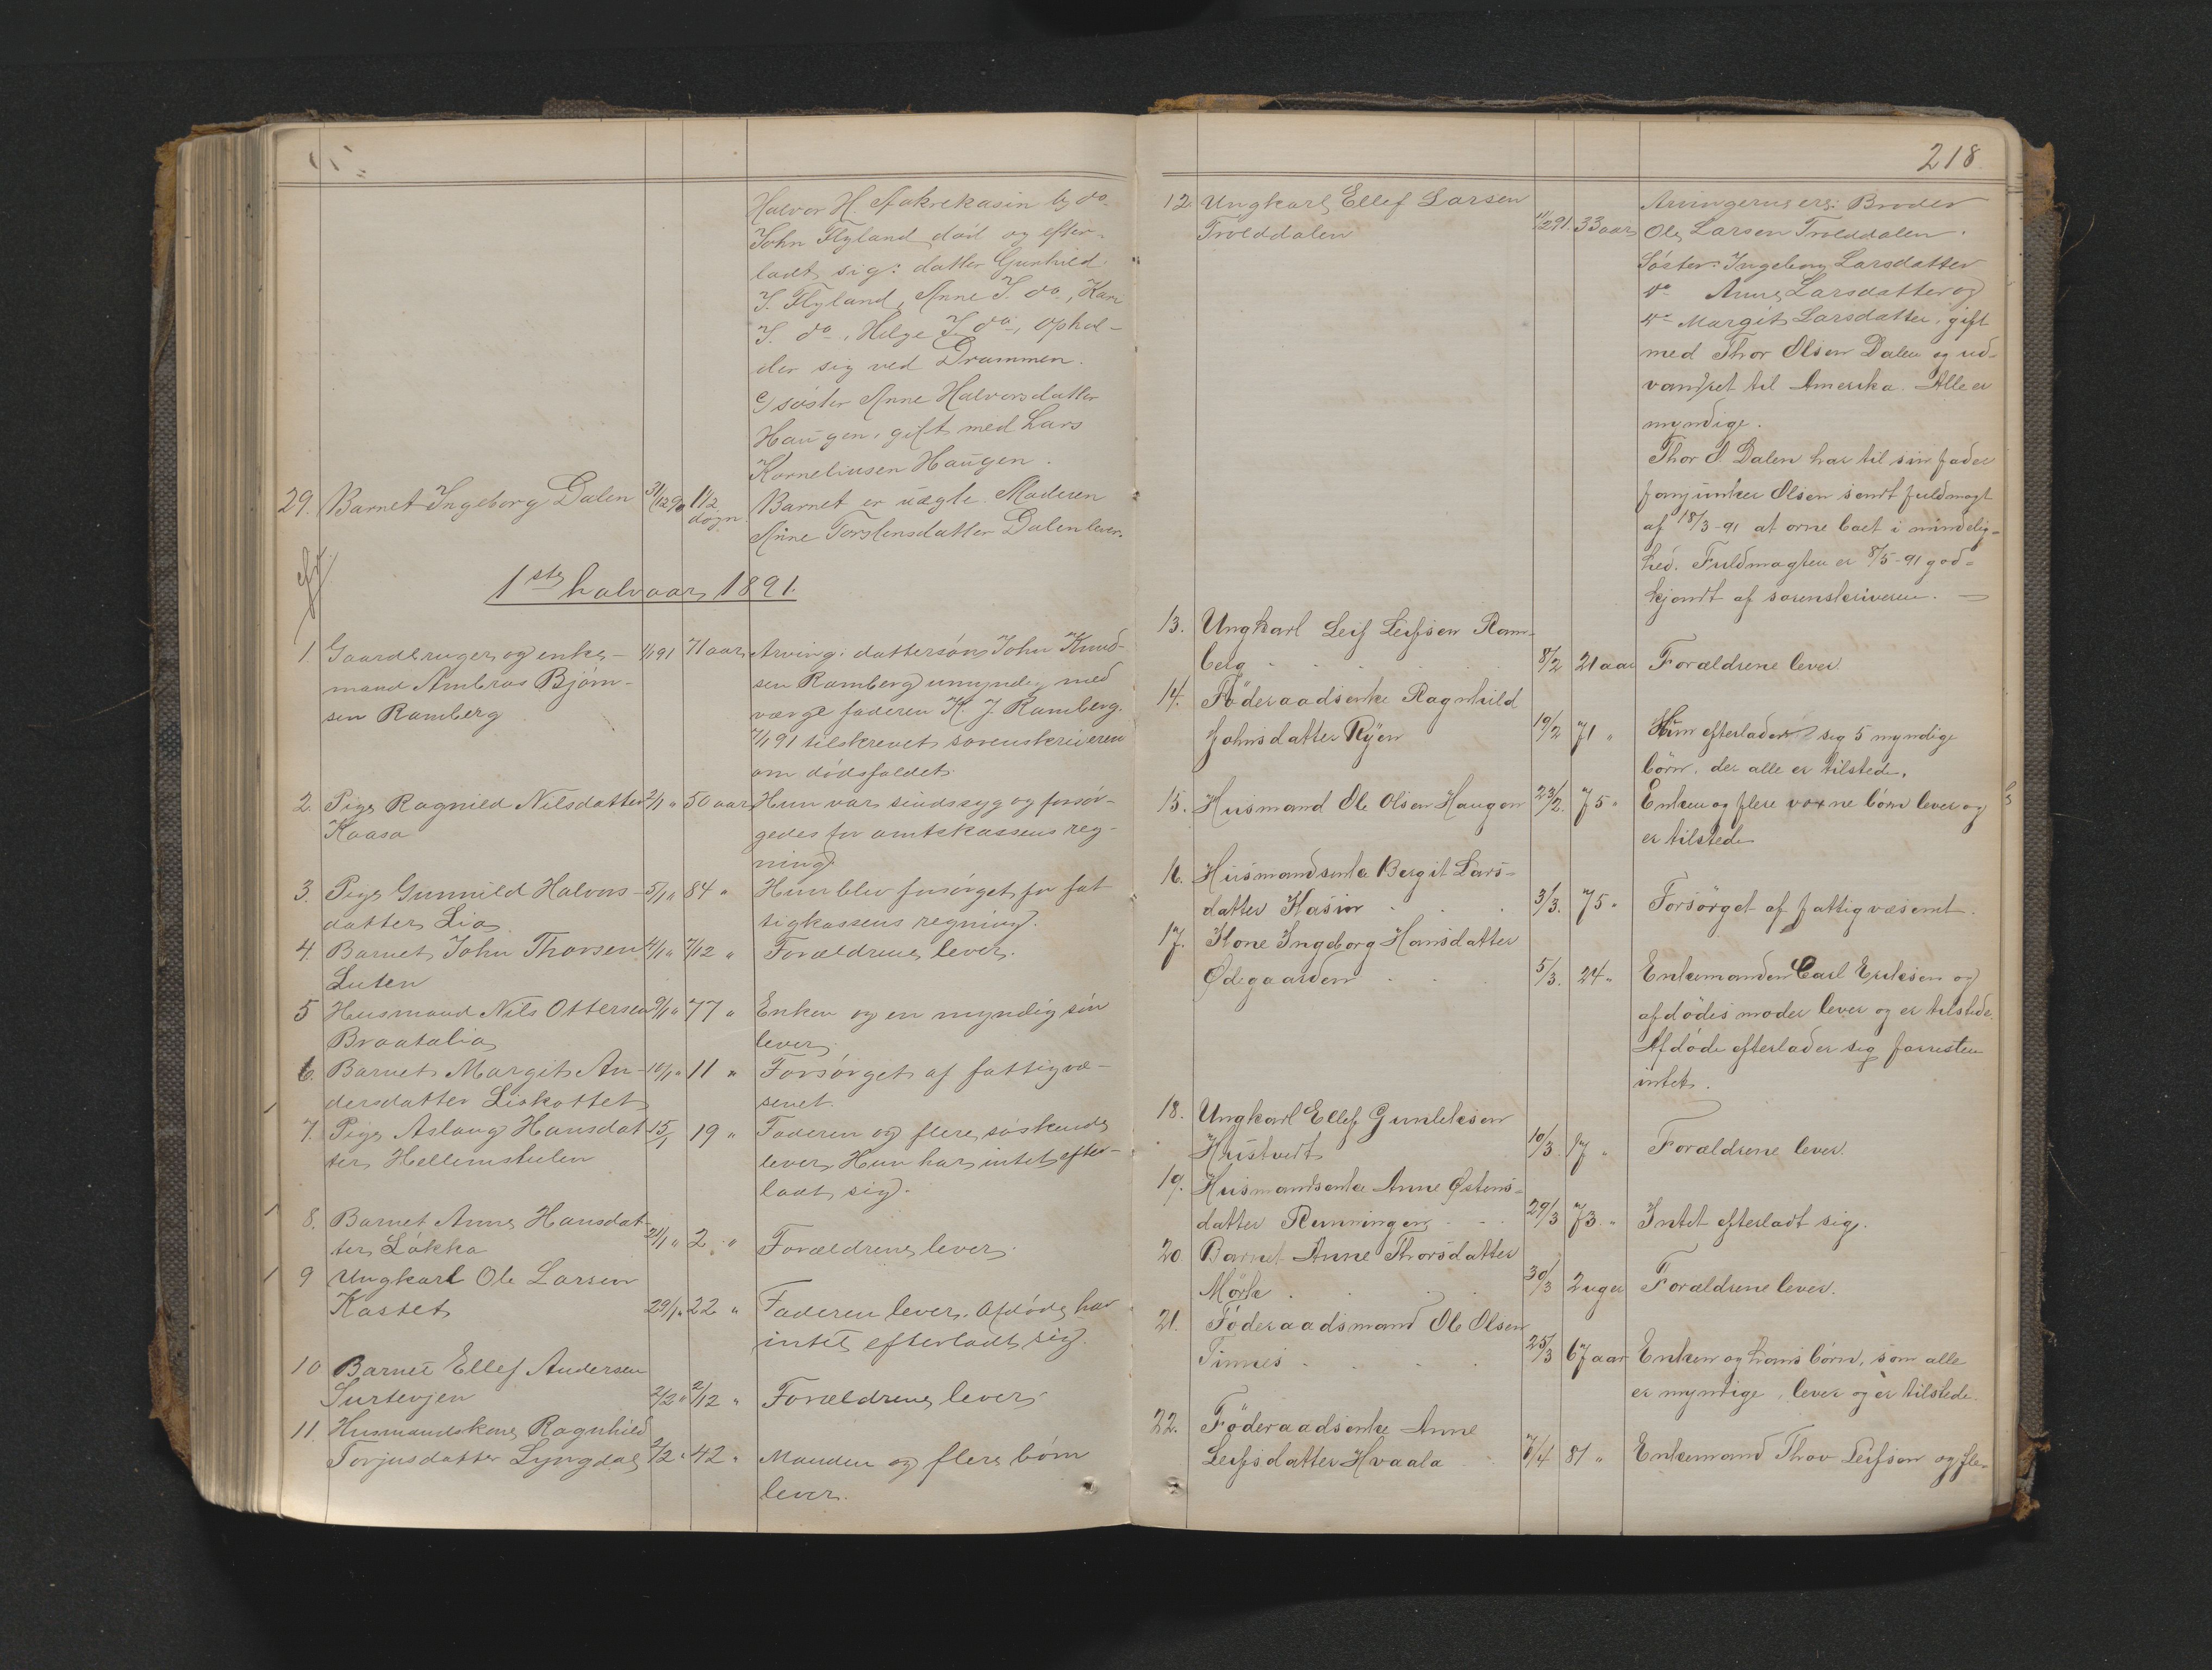 Halvor H. Aakrekasin b, do
John Flyland död og efter-
ladt sig: datter Gunhild
J. Flyland, Anne J. do, Kari
J. do, Helge J. do, ophol-
der sig ved Drammen.
c) söster Anne Halvorsdatter
Haugen, gift med Lars
Korneliusen Haugen.
29. Barnet Ingeborg Dalen 31/12 90 1 1/2 dögn. Barnet er uægte. Moderen
Anne Torstensdatter Dalen lever.
1ste halvaar 1891.
1. Gaardbruger og enke- 1/1 91 71 aar Arving: dattersön John Knud-
mand Ambros Bjørn- sen Ramberg umyndig med
sen Ramberg værge faderen K. J. Ramberg.
7/1 91 tilskrevet sorenskriveren
om dödsfaldet.
2. Pige Ragnild Nilsdatter 2/1 " 50 aar Hun var sindssyg og forsör-
Kaasa gedes for amtskassens reg-
ning.
3. Pige Gunnild Halvors- 5/1 " 84 " Hun blev forsörget for fat-
datter Lia tigkassens regning.
4. Barnet John Thorsen 4/1 " 7/12 " Forældrene lever.
Luten
5 Husmand Nils Ottersen 9/1 " 77 " Enken og en myndig sön
Braatalia lever
6. Barnet Margit An- 10/1 " 11 " Forsörget af fattigvæ-
dersdatter Liskottet senet.
7. Pige Aslaug Hansdat- 15/1 19 " Faderen og flere söskende
ter Hellemstulen lever. Hun har intet efter-
ladt sig.
8. Barnet Anne Hansdat- 21/1 " 2 " Forældrene lever.
ter Lökka
9 Ungkarl Ole Larsen
Kasset 29/1 " 22 " Faderen lever. Afdöde har
intet efterladt sig.
10 Barnet Ellef Andersen
Surtevjen 2/2 " 2/12 " Forældrene lever
11. Husmandskone Ragnhild
Torjusdatter Lyngdal 2/2 " 42 " Manden og flere börn
lever.
218
12. Ungkarl Ellef Larsen Arvingerne er: Broder
Trolddalen 11/2 91. 33 aar Ole Larsen Trolddalen.
Söster: Ingeborg Larsdatter
do Anne Larsdatter og
do Margit Larsdatter, gift
med Thor Olsen Dalen og ud-
vandret til Amerika. Alle er
myndige.
Thor O Dalen har til sin fader
fanjunker Olsen sendt fuldmagt
af 18/3-91 at orne boet i mindelig-
hed. Fuldmagten er 8/5-91 god-
kjendt af sorenskriveren.
13. Ungkarl Leif Leifsen Ram-
berg 8/2 21 aar Forældrene lever
14. Föderaadsenke Ragnhild
Johnsdatter Ryen 19/2 71 " Hun efterlader sig 5 myndige
börn, der alle er tilstede.
15. Husmand Ole Olsen Haugen 23/2. 75 " Enken og flere voxne börn lever og
er tilstede
16. Husmandsenke Bergit Lars-
datter Kasin 3/3. 75 " Forsörget af fattigvæsenet.
17. Kone Ingeborg Hansdatter
Ødegaarden 5/3. 24 " Enkemanden Carl Eriksen og
afdödes moder lever og er tilstede.
Afdöde efterlader sig forresten
intet.
18. Ungkarl Ellef Gunleksen
Hustvedt 10/3 17 " Forældrene lever.
19. Husmandsenke Anne Østens-
datter Runningen 29/3 73. " Intet efterladt sig.
20. Barnet Anne Thorsdatter
Mörk 30/3 2 uger Forældrene lever.
21. Föderaadsmand Ole Olsen
Tinnes 25/3 67 aar Enken og hans börn, som alle
er myndige, lever og er tilstede.
22. Föderaadsenke Anne
Leifsdatter Hvaala 7/4 81 " Enkemand Thov Leifsen og fle-